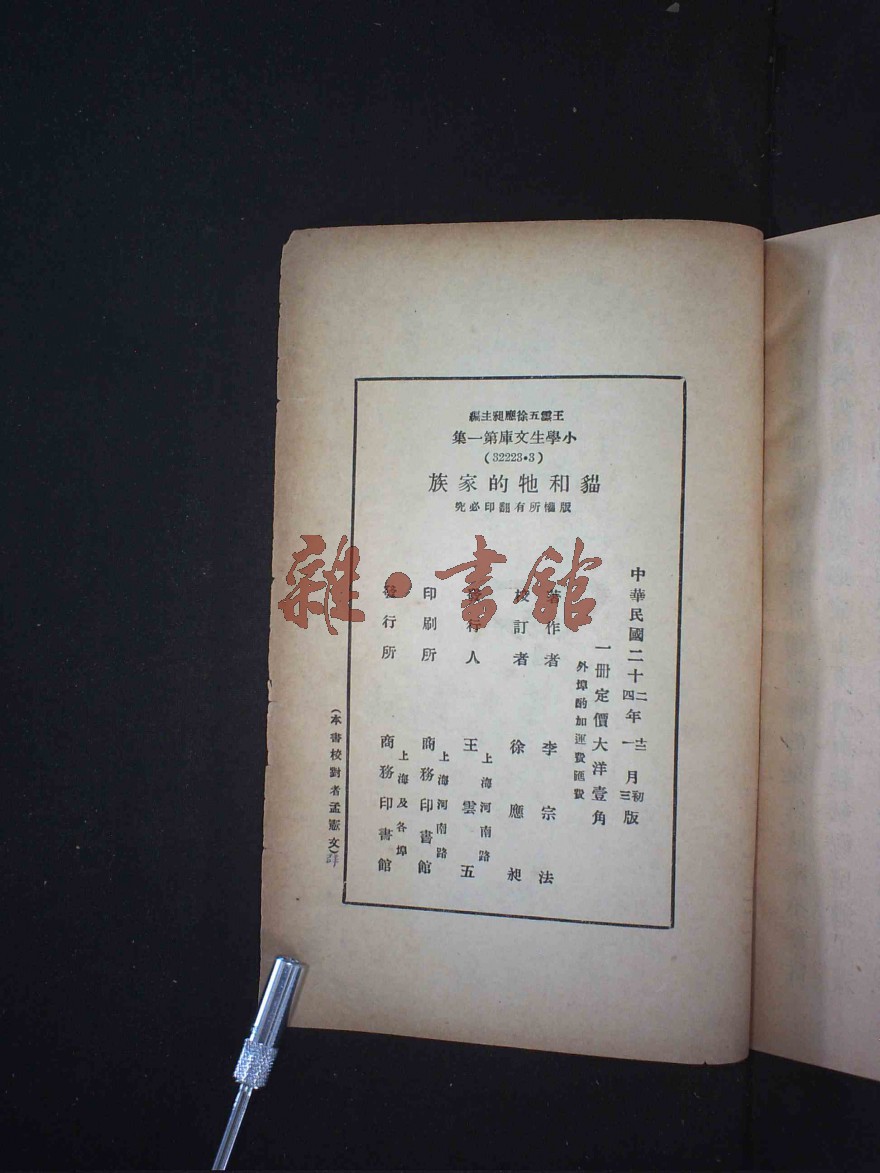 王雲五徐應昶主編
小學生文庫第一集
(32223·3)
貓和牠的家族
版權所有翻印必究
中華民國二十二年十二月初版
四 一 三
一册定價大洋壹角
外埠酌加運費匯費
著作者 李宗法
校訂者 徐應昶
上海河南路
發行人 王雲五
上海河南路
印刷所 商務印書館
上海及各埠
發行所 商務印書館
(本書校對者孟憲文)
雜·書館